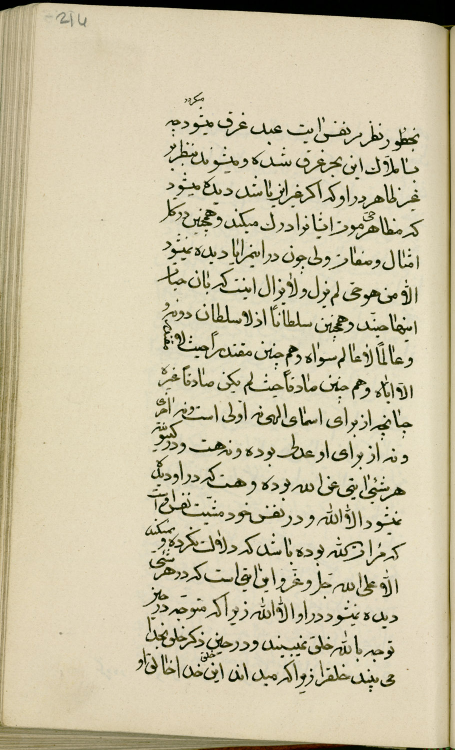 214
میگردد
بظهور نظر بر نفس ایت عبد غرق میشود چه
بسا ملاک این بحر غرق شده و میشوند بنظر بر
غیر ظاهر در او که اگر غیر این باشد دیده میشود
که مظاهر حی موت اشیا نوا درک میکند و همچنین در کل
امثال و مقادن ولی چون در این مرایا دیده نمیشود
الا من هو حی لم یزل و لا یزال اینست که بان حیا
اینها حیند و همچنین سلطانا اذ لا سلطان دونه و
و عالما لا عالم سواه و هم چنین مقتدرا حیث لا مقتدر
الا ایاه و هم چنین صادقا حیث لم یکن صادقا غیره
چنانچه از برای اسمای الهی نه اولی است و نه اخری
و نه از برای او عدلی بوده و نه هست و در کینونیة
هر شئی ایتی عن الله بوده و هست که در او دیده
نمیشود الا الله و در نفس خود مثبت نفس او است
که مرات الله بوده باشد که دلالت نکرده و نمیکند
الا علی الله جل و عز و این ایتی است که در هر شئی
دیده نمیشود در او الا الله زیرا که متوجه در حین
توجه بالله خلق نمیبیند و در حین ذکر خلق بخدا
می بیند خلق را زیرا که میداند این خلق خدا خالق او